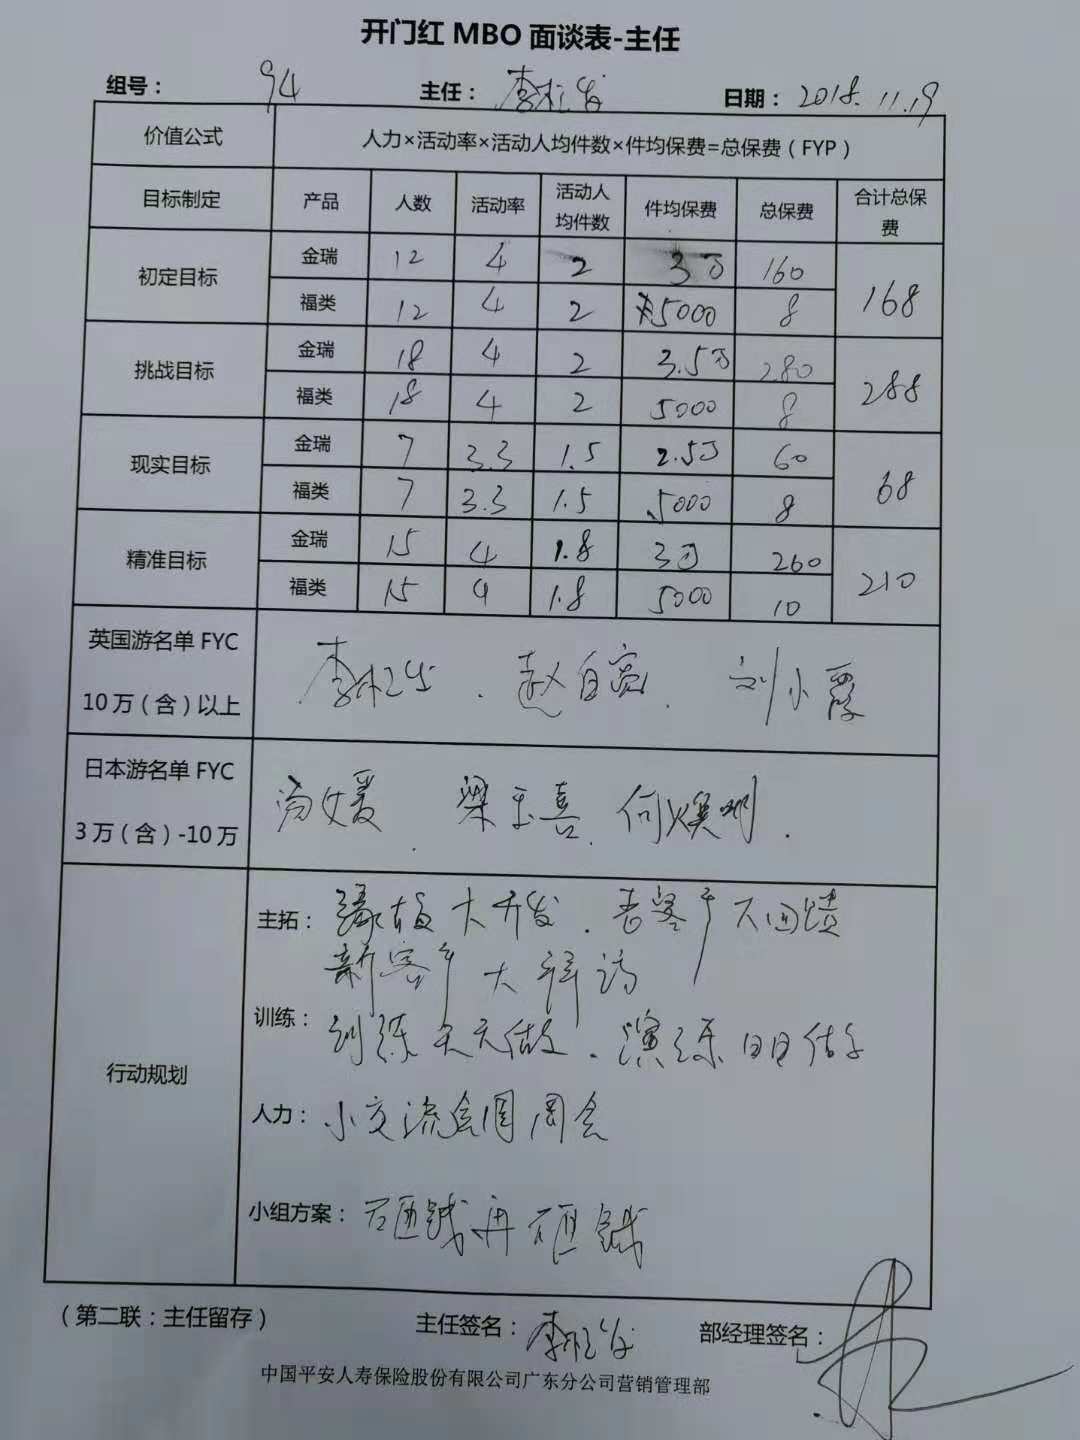 开门红 MBO 面谈表-主任
组号： 94 主任： 李 日期： 2018.11.19
价值公式 人力×活动率×活动人均件数×件均保费=总保费（FYP）
目标制定 产品 人数 活动率 活动人均件数 件均保费 总保费 合计总保费
初定目标 金瑞 12 4 2 3万 160 168
福类 12 4 2 5000 8
挑战目标 金瑞 18 4 2 3.5万 280 288
福类 18 4 2 5000 8
现实目标 金瑞 7 3.3 1.5 2.5万 60 68
福类 7 3.3 1.5 5000 8
精准目标 金瑞 15 4 1.8 3万 260 210
福类 15 4 1.8 5000 10
英国游名单 FYC
10万（含）以上 李 . 赵自宽. 刘小霞
日本游名单 FYC
3万（含）-10万 汤媛. 梁玉喜. 何焕明.
行动规划
主拓： 缘故大开发. 老客户大回馈
新客户大拜访
训练： 训练天天做. 演练日日做
人力： 小交流会周周会
小组方案： 砸钱再砸钱
（第二联：主任留存） 主任签名： 李 部经理签名：
中国平安人寿保险股份有限公司广东分公司营销管理部